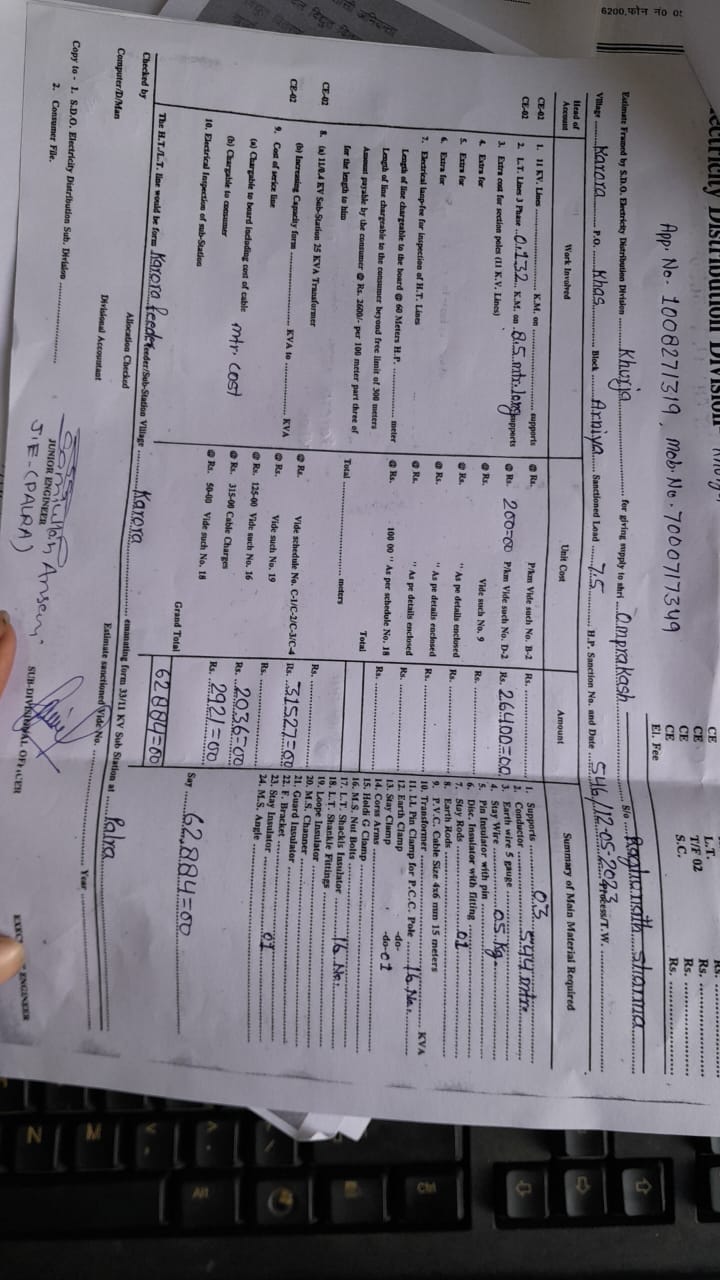 6200,फोन नं०
Electricity Distribution Division
App. No- 1008271319, Mob. No. 7000717349
L.T. Rs.
CE T/F 02 Rs.
CE S.C. Rs.
CE
El. Fee Rs.
Estimate Framed by S.D.O. Electricity Distribution Division Khurja for giving supply to shri Omprakash S/o Raghunath Sharma
Village Karora P.O. Khas Block Arniya Sanctioned Load 7.5 H.P. Sanction No. and Date 546/12-05-2023 Process/T.W.
Head of Account Work Involved Unit Cost Amount Summary of Main Material Required
CE-02 1. 11 KV. Lines K.M. on supports @ Rs. P/km Vide such No. B-2 Rs.
CE-02 2. L.T. Lines 3 Phase 0.132 K.M. on 8.5 mtr. long supports @ Rs. 200=00 P/km Vide such No. D-2 Rs. 26400=00
3. Extra cost for section poles (11 K.V. Lines) @ Rs. Vide such No. 9 Rs.
4. Extra for @ Rs. " As pe details enclosed Rs.
5. Extra for @ Rs. " As pe details enclosed Rs.
6. Extra for @ Rs. " As pe details enclosed Rs.
7. Electrical Inspection fee for inspection of H.T. Lines
Length of line chargeable to the board @ 60 Meters H.P. meter @ Rs. 100 00 " As per schedule No. 18 Rs.
Length of line chargeable to the consumer beyond free limit of 300 meters
Amount payable by the consumer @ Rs. 2600/- per 100 meter part three of Total
for the length to him Total meters
CE-02 8. (a) 11/0.4 KV Sub-Station 25 KVA Transformer Rs.
(b) Increasing Capacity form KVA to KVA @ Rs. Vide schedule No. C-1/C-2/C-3/C-4 Rs. 31527=00
CE-02 9. Cost of serice line @ Rs. Vide such No. 19 Rs.
(a) Chargable to board including cost of cable @ Rs. 125-00 Vide such No. 16 Rs. 2036=00
(b) Chargable to consumer mtr cost @ Rs. 315-00 Cable Charges Rs. 2921=00
10. Electrical Inspection of sub-Station @ Rs. 50-00 Vide such No. 18
Grand Total 62884=00
1. Supports 03
2. Conductor 544 mtr.
3. Earth wire 5 gauge
4. Stay Wire 05 Kg.
5. Pin Insulator with pin
6. Disc. Insulator with fitting
7. Stay Rods 01
8. Earth Rods
9. P.V.C. Cable Size 4x6 mm 15 meters
10. Transformer KVA
11. LL Pin Clamp for P.C.C. Pole 16 No.
12. Earth Clamp -do-
13. Stay Clamp -do- 01
14. Corn Arms
15. Holdi G Clamp
16. M.S. Nut Bolts
17. L.T. Shackls Insulator 16 No.
18. L.T. Shackle Fittings
19. Loope Insulator
20. M.S. Channer
21. Guard Insulator
22. F. Bracket
23. Stay Insulator 01
24. M.S. Angle
Say 62884=00
The H.T./L.T. line would be form Karora feeder feeder/Sub-Station Village Karora emanating form 33/11 KV Sub Station at Palra
Checked by Allocation Checked Estimate sanctioned Vide No. Year
Computer/D/Man Divisional Accountant JUNIOR ENGINEER SUB-DIVISIONAL OFFICER ENGINEER
J.E-(PALRA)
Copy to - 1. S.D.O. Electricity Distribution Sub. Division
2. Consumer File.
N
M
Alt
Ctrl